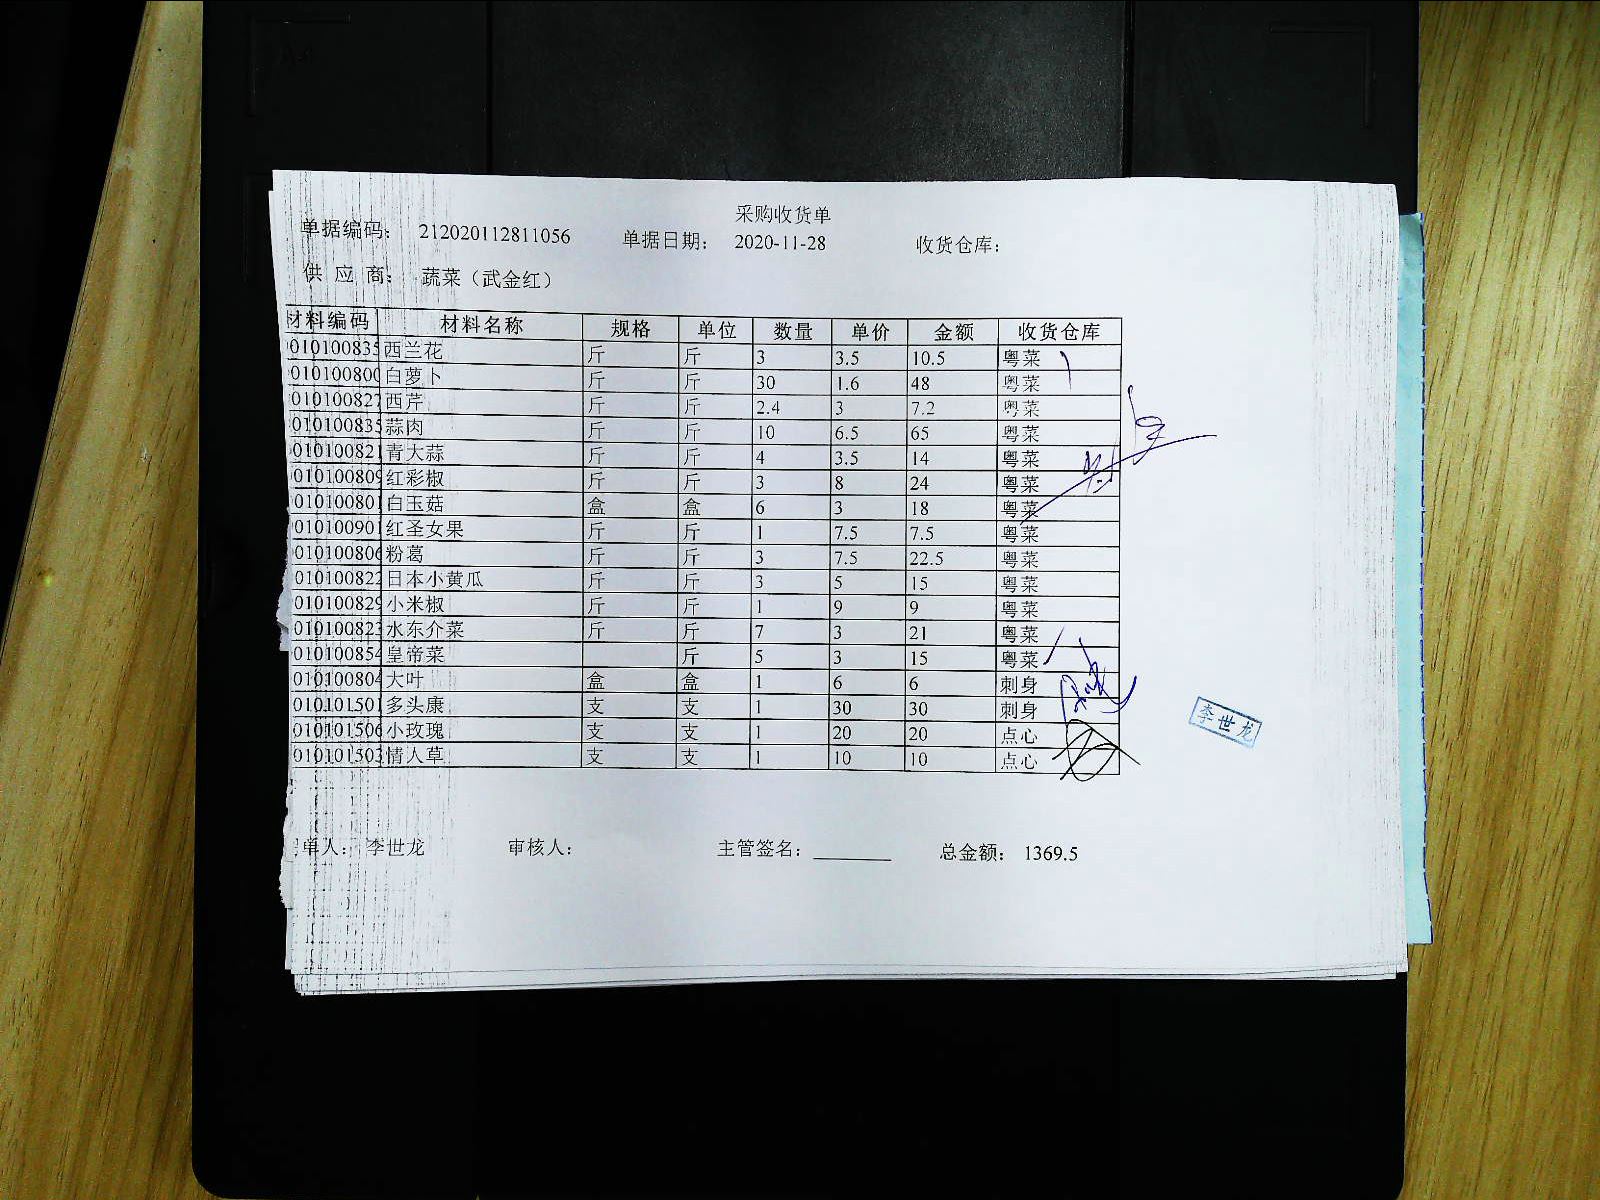 采购收货单
单据编码: 212020112811056 单据日期: 2020-11-28 收货仓库:
供 应 商: 蔬菜（武金红）
材料编码 材料名称 规格 单位 数量 单价 金额 收货仓库
010100835 西兰花 斤 斤 3 3.5 10.5 粤菜
010100800 白萝卜 斤 斤 30 1.6 48 粤菜
010100827 西芹 斤 斤 2.4 3 7.2 粤菜
010100835 蒜肉 斤 斤 10 6.5 65 粤菜
010100821 青大蒜 斤 斤 4 3.5 14 粤菜
010100809 红彩椒 斤 斤 3 8 24 粤菜
010100801 白玉菇 盒 盒 6 3 18 粤菜
010100901 红圣女果 斤 斤 1 7.5 7.5 粤菜
010100806 粉葛 斤 斤 3 7.5 22.5 粤菜
010100822 日本小黄瓜 斤 斤 3 5 15 粤菜
010100829 小米椒 斤 斤 1 9 9 粤菜
010100823 水东介菜 斤 斤 7 3 21 粤菜
010100854 皇帝菜 斤 5 3 15 粤菜
010100804 大叶 盒 盒 1 6 6 刺身
010101501 多头康 支 支 1 30 30 刺身
010101506 小玫瑰 支 支 1 20 20 点心
010101503 情人草 支 支 1 10 10 点心
李世龙
单人: 李世龙 审核人: 主管签名: 总金额: 1369.5